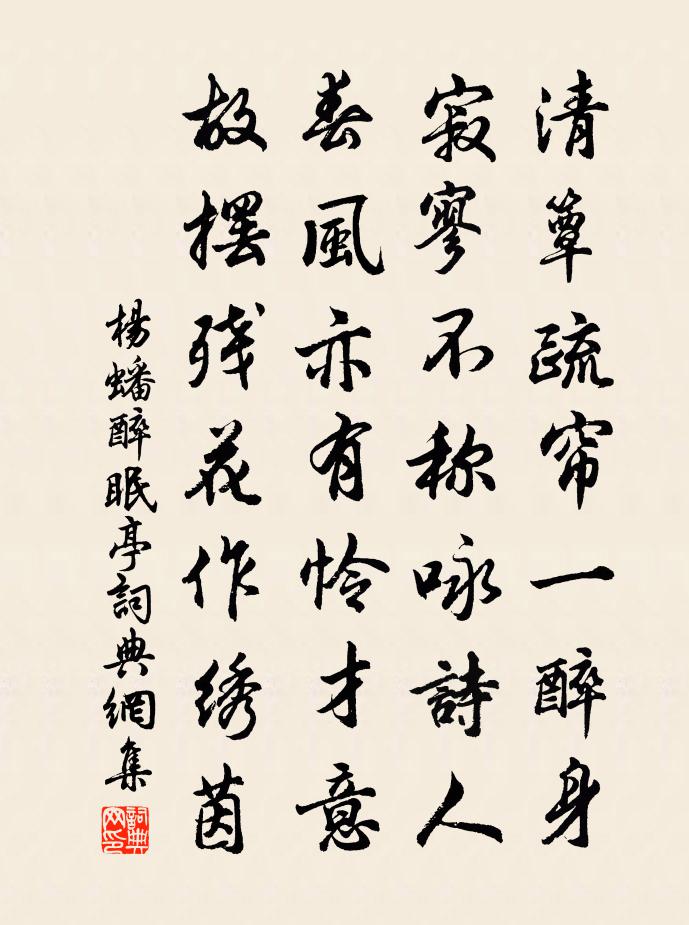 清簟疏帘一醉身
寂寥不称咏詩人
春風亦有怜才意
故摆残花作绣茵
楊蟠醉眠亭詞典網集
詞典
网印